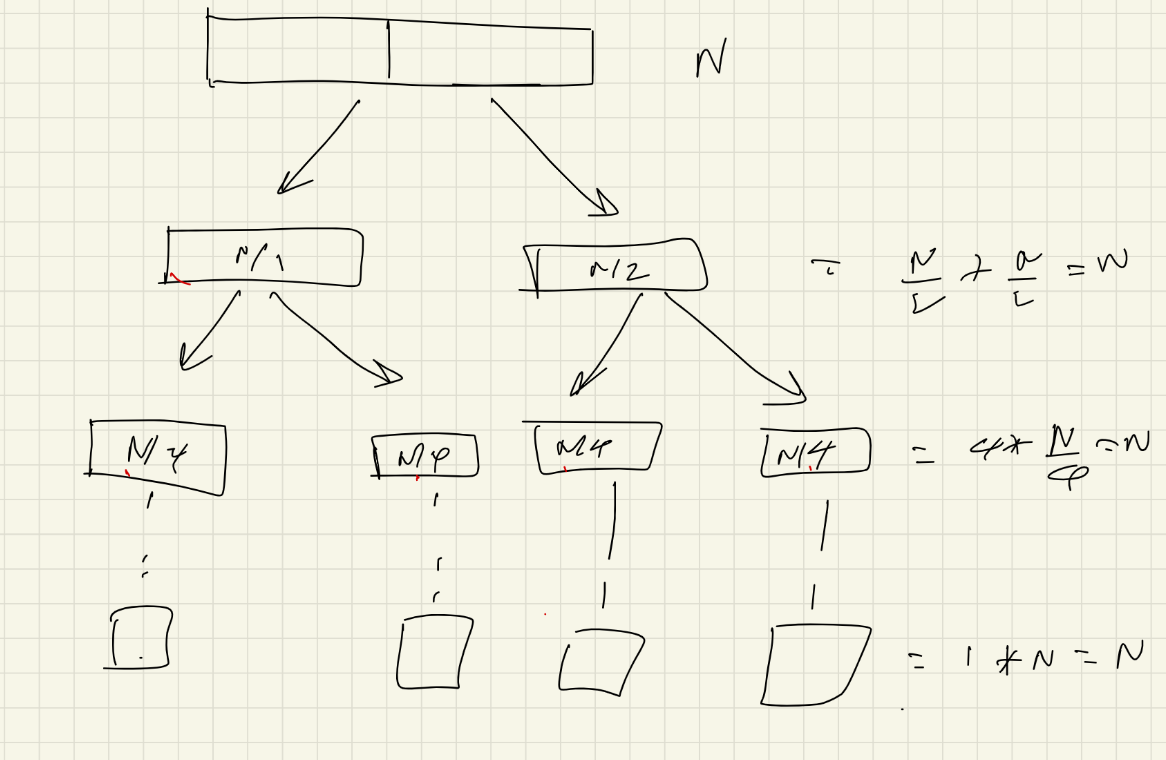 N
N/1
N/2
= N/2 + N/2 = N
N/4
N/4
N/4
N/4
= 4* N/4 = N
= 1 * N = N